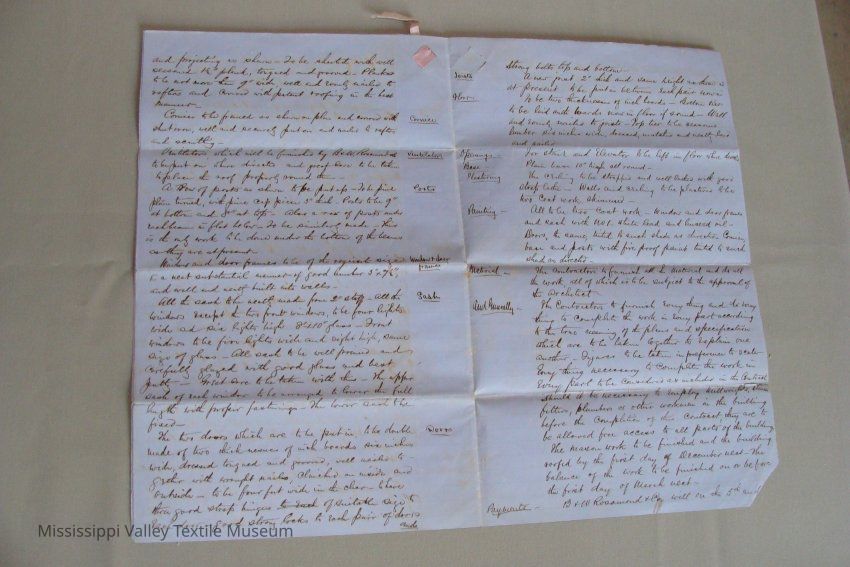 and projecting as shown - To be sheeted with well
seasoned 1½" plank, tongued and grooved. Planks
to be not more than 9" wide well and evenly nailed to
rafters and Covered with patent roofing in the best
manner -
Cornice
Cornice to be framed as shown on plan and covered with
sheet iron, well and securely put on and nailed to rafters
and neatly.
Ventilators
Ventilators which will be furnished by B & W Rosamond
to be put on when directed and great care to be taken
to place the roof properly around them -
Posts
A Row of posts as shown to be put up - To be pine
plain turned, with pine cap pieces 3" thick. Posts to be 9"
at bottom and at top - Also a row of posts under
each beam in flat below - To be similarly made - This
is the only work to be done under the bottom of the beams
as they are at present -
Window & door frames
Window and door frames to be of the required size
in a neat substantial manner of good lumber
and well and neatly built into walls -
Sash
All the sash to be neatly made from 2" stuff - All the
windows except the two front windows to be four lights
wide and six lights high 8"x10" glass - Front
windows to be five lights wide and eight high, same
size of glass - All sash to be well primed and
carefully glazed with good glass and best
putty - Great care to be taken with this - The upper
sash of each window to be arranged to lower the full
length with proper fastenings - The lower sash to be
fixed -
Doors
The two doors which are to be put in, to be double
made of two thicknesses of inch boards six inches
wide, dressed tongued and grooved, well nailed to-
gether with wrought nails, clinched on inside and
outside - to be four feet wide in the clear - Have
three good strap hinges to each of suitable size to
good strong locks to each pair of doors
and
strong bolts top and bottom
Joists
A new joist 2" thick and same height as there is
at present to be put in between each pair now
Floor
To be two thicknesses of inch boards - Bottom tier
to be laid with boards now in floor if sound - Well
and evenly nailed to joists - Top tier to be seasoned
lumber six inches wide, dressed, matched and neatly laid
and nailed
Openings
for stairs and Elevator to be left in floor where
Base
Plain base 10" high all round -
Plastering
The ceiling to be strapped and well lathed with good
strong laths - Walls and ceiling to be plastered to be
two Coat work skimmed -
Painting
All to be two Coat work - Window and door frames
and sash with No 1 white lead and linseed oil -
Doors, the same, tinted to such shade as directed. Cornice,
base and posts with fire proof paint tinted to such
shade as directed -
Material
The Contractors to furnish all the material and do all
the work, all of which is to be subject to the approval of
the Architect -
And Generally -
The Contractor to furnish every thing and do every
thing to complete the work in every part according
to the true meaning of the plans and specification
which are to be taken together to explain one
another - Figures to be taken in preference to scale -
Every thing necessary to complete the work in
every part to be considered as included in the Contract
Should it be necessary to employ Millwrights, steam
fitters, plumbers or other workmen in the building
before the Completion of this Contract, they are to
be allowed free access to all parts of the building
The mason work to be finished and the building
roofed by the first day of December next - The
balance of the work to be finished on or before
the first day of March next -
Payments -
B & W Rosamond & Co will on the 5th and
Mississippi Valley Textile Museum